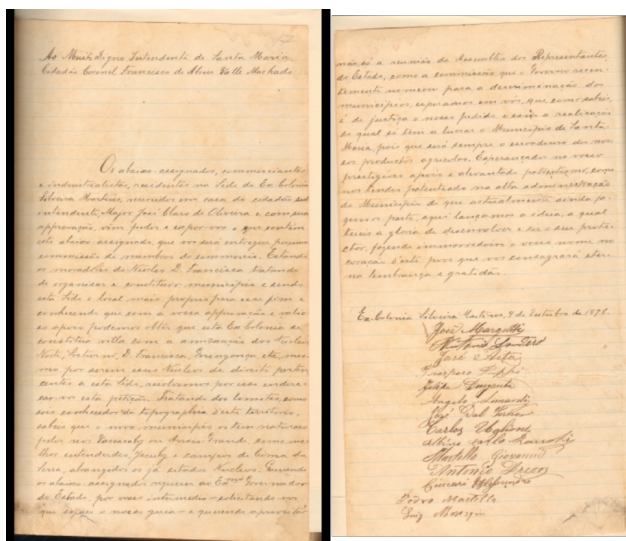 Ao Muito Digno Intendente de Santa Maria
Cidadão Coronel Francisco de Abreu Valle Machado
Os abaixo assignados, commerciantes
e industrialistas, residentes na Séde da Ex Colonia
Silveira Martins, reunidos em casa do cidadão sub
intendente, Major José Claro de Oliveira e com sua
approvação, vêm pedir e expor-vos o que contém
este abaixo assignado, que vos será entregue por uma
commissão de membros do commercio. Estando
os moradores do Nucleo D. Francisca tratando
de organisar e constituir municipio e sendo
esta Séde o local mais proprio para esse fim e
conhecendo que sem a vossa approvação e valio
so apoio podemos obter que esta Ex Colonia se
constitua villa com a annexação dos Nucleos
Norte, Soturno, D. Francisca, Ivengonça, etc, mes
mo por serem esses Nucleos de direito perten
centes a esta Séde, resolvemos por isso endere
çar-vos esta petição. Tratando dos limites, como
sois conhecedor da topographia d'este territorio,
sabeis que o novo municipio os tem naturaes
pelos rios Vacacahy ou Arroio Grande, como me
lhor entenderdes, Jacuhy e campos de Cima da
Serra, abrangendo os já citados Nucleos. Querendo
os abaixo assignados requerer ao Exmo Governador
do Estado, por vosso intermedio - solicitando-vos
que sejaes o nosso guia - e querendo aproveitar
não só a reunião da Assembléa dos Representantes
do Estado, como a commissão que o Governo recen
temente nomeou para a descriminação dos
municipios, esperamos em vós, que, como sabeis,
é de justiça o nosso pedido e com a realisação
do qual só tem a lucrar o Municipio de Santa
Maria, pois que será sempre o escoadouro dos nos
sos productos agricolas. Esperançados no vosso
prestigioso apoio e alevantado patriotismo, de que
nos tendes patenteado na alta administração
do Municipio de que actualmente ainda fa
zemos parte, aqui lançamos a idéa, a qual
tereis a gloria de desenvolver e ser o seu prote
ctor, fazendo immorredouro o vosso nome no
coração d'este povo que vos consagrará eter
na lembrança e gratidão.
Ex-Colonia Silveira Martins, 9 de Outubro de 1898.
José
Antonio
José
Prospero Pippi
Felipe
Angelo
José Dal
Carlos
Albino Carlo
Mortella Giovanni
Antonio Druzs
Alessandro
Pedro Mortella
Luiz